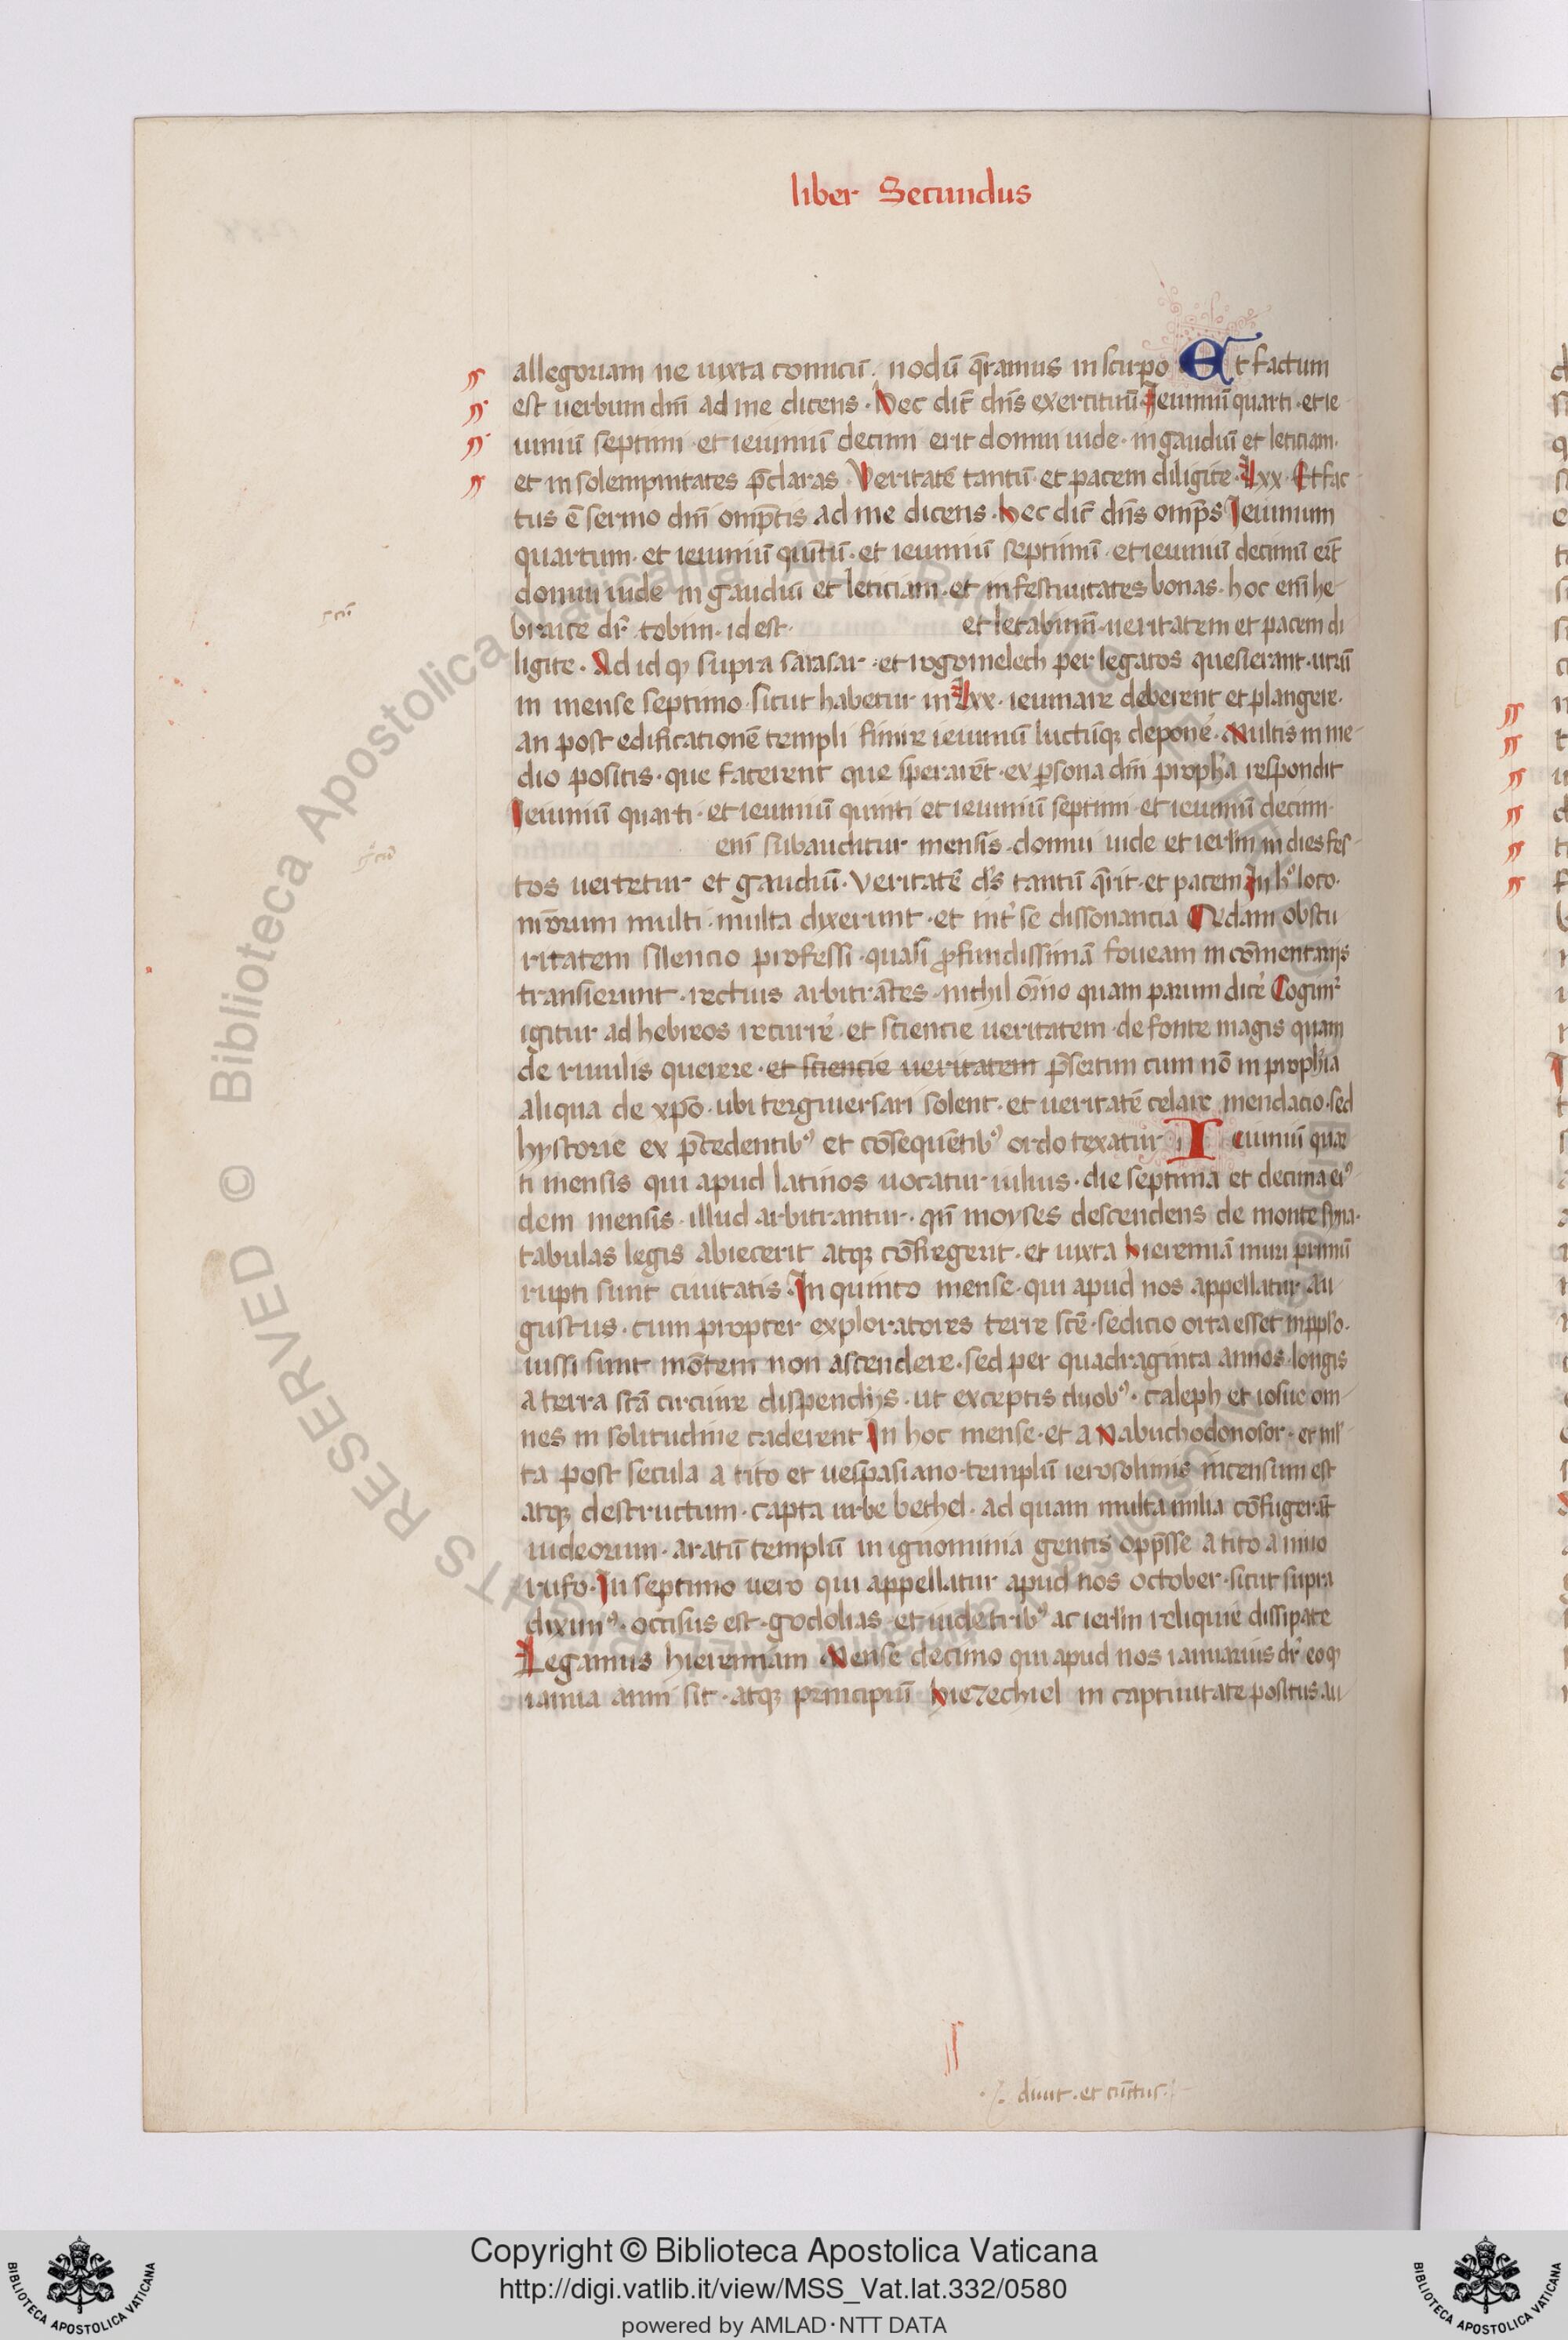 liber Secundus
allegoriam ne iuxta comicū. nodū q̄ramus in scirpo Et factum
est uerbum dn̄i ad me dicens. hec dic̄ dn̄s exercituū Ieiuniū quarti. et ie
iuniū septimi. et ieiuniū decimi erit domui iude. in gaudiū et leticiam.
et in solempnitates p̄claras. Veritatē tantū. et pacem diligite. Lxx. Et fac
tus ē sermo dn̄i omp̄tis ad me dicens. hec dic̄ dn̄s omp̄s Ieiunium
quartum. et ieiuniū quintū. et ieiuniū septimū. et ieiuniū decimū erit̄
domui iude in gaudiū et leticiam. et in festiuitates bonas. hoc eni he
braice dr̄ tobim. id est. et letabimī. ueritatem et pacem di
ligite. Ad id qȝ supra sarasar. et rogomelech per legatos quesierant. utrū
in mense septimo. sicut habetur in Lxx. ieiunare deberent et plangere.
an post edificationē templi finire ieiuniū luctūqȝ deponē. Multis in me
dio positis. que facerent que sperarēt. ex ꝑsona dn̄i proph̄a respondit
Ieiuniū quarti. et ieiuniū quinti et ieiuniū septimi. et ieiuniū decimi.
eni subauditur mensis. domui iude et ierl̄m in dies fes
tos uertetur et gaudiū. Veritatē d̄s tantū q̄rit. et pacem In h° loco.
nr̄orum multi. multa dixerunt. et int̄ se dissonancia Q̄dam obscu
ritatem silencio professi. quasi ꝓfundissimā foueam in cōmentarijs
transierunt. rectius arbitrātes. nichil oīno quam parum dicē Cogim̄
igitur ad hebreos recurrē. et sciencie ueritatem. de fonte magis quam
de riuulis querere. et sciencie ueritatem p̄sertim cum nō in proph̄ia
aliqua de xp̄o. ubi tergiuersari solent. et ueritatē celare mendacio. sed
hystorie ex p̄cedentibꝰ et cōsequētibꝰ ordo texatur Ieiuniū quar
ti mensis qui apud latinos uocatur iulius. die septima et decima eiꝰ
dem mensis. illud arbitrantur. qn̄ moyses descendens de monte syna.
tabulas legis abiecerit atqȝ cōfregerit. et iuxta hieremiā muri primū
rupti sunt ciuitatis. In quinto mense. qui apud nos appellatur. au
gustus. cum propter exploratores terre scē. sedicio orta esset in pp̄lo.
iussi sunt mōtem non ascendere. sed per quadraginta annos. longis
a terra scā circuire dispendijs. ut exceptis duobꝰ. caleph et iosue om
nes in solitudine caderent In hoc mense. et a Nabuchodonosor. et ml̄
ta post secula a tito et uespasiano. templū ierosolimis incensum est
atqȝ destructum. capta urbe bethel. ad quam multa milia cōfugerāt
iudeorum. aratū templū in ignominia gentis opp̄sse a tito annio
rufo. In septimo uero qui appellatur apud nos october. sicut supra
diximꝰ. occisus est. godolias et iude tribꝰ ac ierl̄m reliquie dissipate
Legamus hieremiam Mense decimo qui apud nos ianuarius dr̄ eo qȝ
ianua anni sit. atqȝ principiū hiezechiel in captiuitate positus. au
diuit. et cūctus.
© Biblioteca Apostolica Vaticana
Copyright © Biblioteca Apostolica Vaticana
http://digi.vatlib.it/view/MSS_Vat.lat.332/0580
powered by AMLAD·NTT DATA
BIBLIOTECA APOSTOLICA VATICANA
BIBLIOTECA APOSTOLICA VATICANA